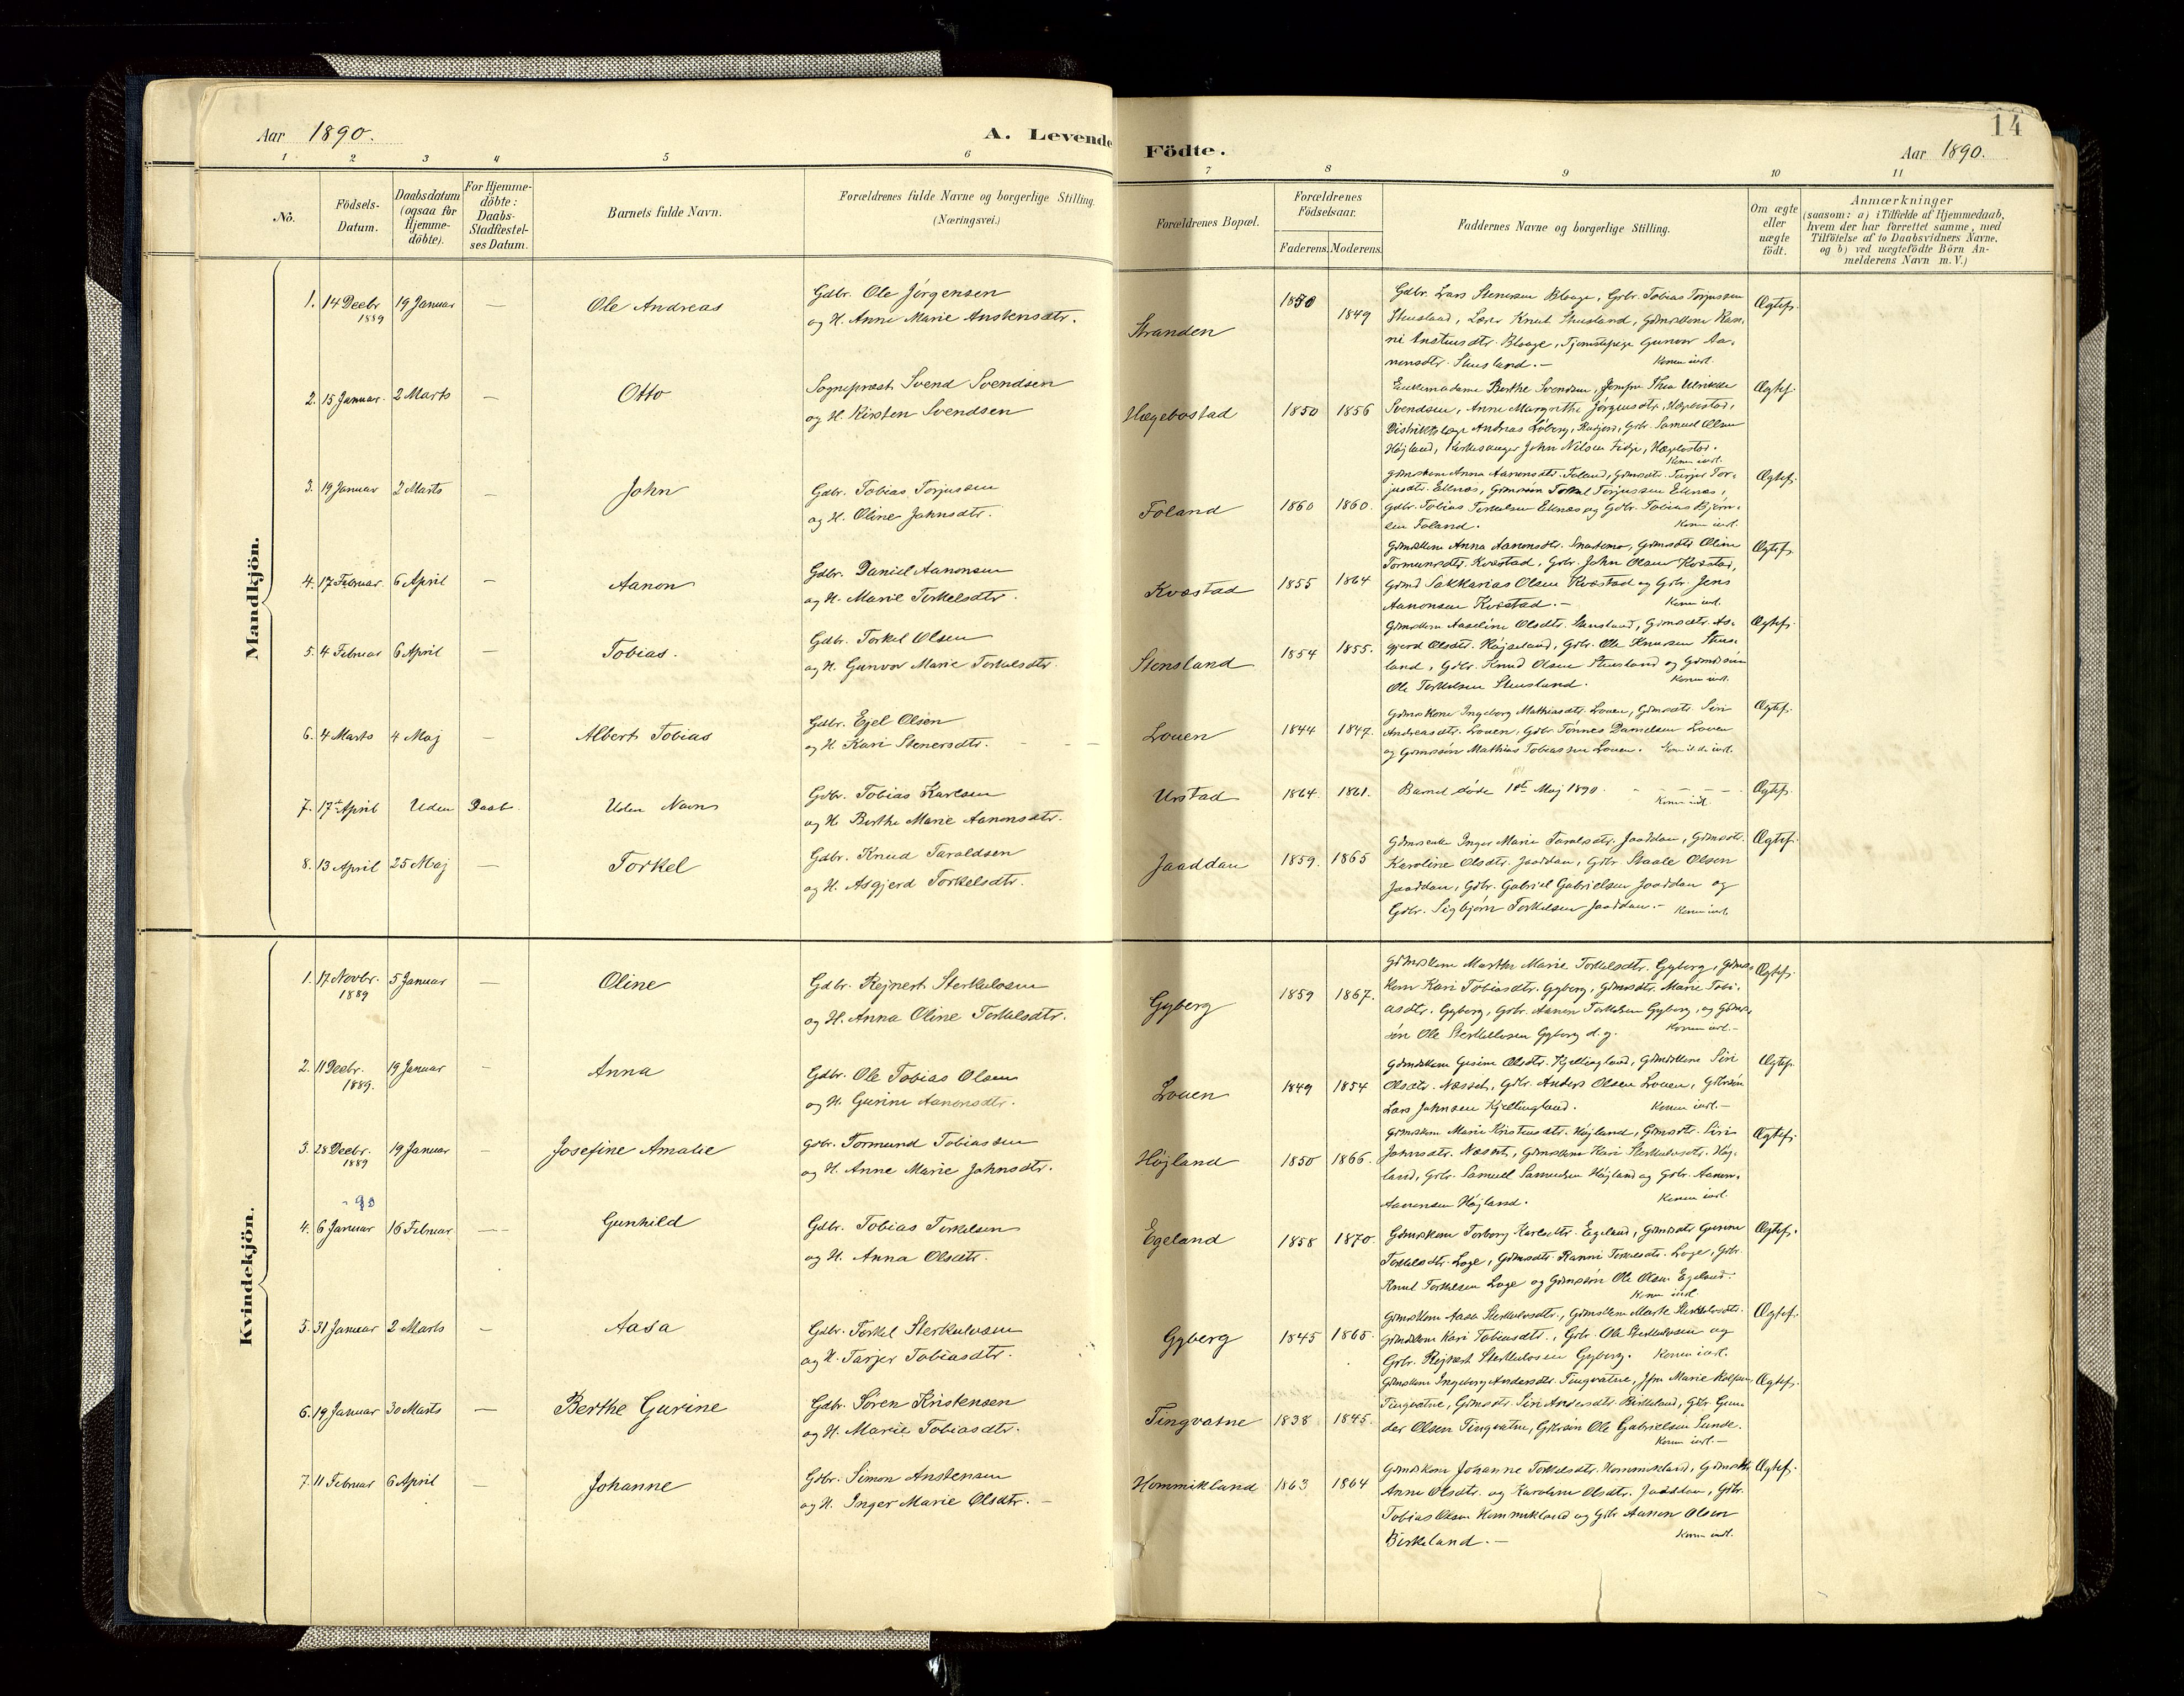 14
Aar 1890.
A. Levende Födte.
Aar 1890.
1 2 3 4 5 6 7 8 9 10 11
No.
Födsels-
Datum.
Daabsdatum
(ogsaa for
Hjemme-
döbte).
For Hjemme-
döbte:
Daabs-
Stadfæstel-
ses Datum.
Barnets fulde Navn.
Forældrenes fulde Navne og borgerlige Stilling.
(Næringsvei.)
Forældrenes Bopæl.
Forældrenes
Födselsaar.
Faderens. Moderens.
Faddernes Navne og borgerlige Stilling.
Om ægte
eller
uægte
födt.
Anmærkninger
(saasom: a) i Tilfælde af Hjemmedaab,
hvem der har forrettet samme, med
Tilföielse af to Daabsvidners Navne,
og b) ved uægtefödte Börn An-
melderens Navn m. V.)
Mandkjön.
1. 14 Decbr. 1889 19 Januar — Ole Andreas
Gdbr. Ole Jörgensen
og H. Anne Marie Anstensdtr.
Stranden 1850 1849
Gdbr. Lars Stenersen Blaage, Gdbr. Tobias Torjussen
Stensland, Lærer Knut Stensland, Gdmdskone Ran-
ni Anstensdtr. Blaage, Tjenestepige Gunvor Aa-
nensdtr. Stensland. — Konen indl.
Ægtef.
2. 15 Januar. 2 Marts — Otto
Sognepræst Svend Svendsen
og H. Kirsten Svendsen
Hægebostad 1850 1856
Enkemadame Berthe Svendsen, Jomfru Thea Ulrikke
Svendsen, Anne Margrethe Jörgensdtr. Hægebostad,
Distriktslæge Andreas Löberg, Gdbr. Samuel Olsen
Höjland, Kirkesanger John Nilsen Eidje, Hægebostad.
Konen indl.
Ægtef.
3. 19 Januar 2 Marts — John
Gdbr. Tobias Torjussen
og H. Oline Jahnsdtr.
Foland 1860 1860.
Gdmdskone Anna Aanonsdtr. Foland, Gdmdsdtr. Tarjer Tor-
jusdtr. Eiknæs, Gdmdssön Torkel Torjussen Eiknæs,
Gdbr. Tobias Torkelsen Eiknæs og Gdbr. Tobias Björn-
sen Foland. Konen indl.
Ægtef.
4. 17 Februar 6 April — Aanon
Gdbr. Daniel Aanonsen
og H. Marie Torkelsdtr.
Kvæstad 1855 1864
Gdmdskone Anna Aanonsdtr. Snartemo, Gdmdsdtr. Oline
Tormunsdtr. Kvæstad, Gdbr. John Olsen Kvæstad,
Gdmd Sakkarias Olsen Kvæstad og Gdbr. Jens
Aanonsen Kvæstad. — Konen indl.
Ægtef.
5. 4 Februar 6 April — Tobias.
Gdbr. Torkel Olsen
og H. Gunvor Marie Torkelsdtr.
Stensland 1854 1855.
Gdmdskone Aaseline Olsdtr. Stensland, Gdmdsdtr. As-
gjerd Olsdtr. Höjseland, Gdbr. Ole Knudsen Stens-
land, Gdbr. Knud Olsen Stensland og Gdmdssön
Ole Torkelsen Stensland. Konen indl.
Ægtef.
6. 4 Marts 4 Maj — Albert Tobias
Gdbr. Ejel Olsen
og H. Kari Stenersdtr.
Louen 1844 1847.
Gdmdskone Ingeborg Mathiasdtr. Louen, Gdmdsdtr. Siri
Andreasdtr. Louen, Gdbr. Tönnes Danielsen Louen
og Gdmdssön Mathias Tobiassen Louen.
Ægtef.
7. 17de April Uden Daab. Uden Navn
Gdbr. Tobias Karlsen
og H. Berthe Marie Aanonsdtr.
Urstad 1864. 1861.
Barnet döde 1ste Maj 1890.
Konen indl.
Ægtef.
8. 13 April 25 Maj — Torkel
Gdbr. Knud Taraldsen
og H. Asgjerd Torkelsdtr.
Jaaddan 1859. 1865
Inger Marie Taraldsdtr. Jaaddan, Gdmdsdtr.
Karoline Olsdtr. Jaaddan, Gdbr Staale Olsen
Jaaddan, Gdbr. Gabriel Gabrielsen Jaaddan og
Gdbr. Sigbjörn Torkelsen Jaaddan. — Konen indl.
Ægtef.
Kvindekjön.
1. 17 Novbr. 1889 5 Januar — Oline
Gdbr. Rejnert Sterkulvsen
og H. Anna Oline Torkelsdtr.
Gyberg 1859 1867.
Gdmdskone Marthe Marie Torkelsdtr. Gyberg, Gdmds-
kone Kari Tobiasdtr. Gyberg, Gdmdsdtr. Marie Tobi-
asdtr. Gyberg, Gdbr. Aanen Torkelsen Gyberg, og Gdmds-
sön Ole Sterkulvsen Gyberg d. y. Konen indl. —
Ægtef.
2. 11 Decbr. 1889. 19 Januar - Anna
Gdbr. Ole Tobias Olsen
og H. Gurine Aanonsdtr.
Louen 1849 1854
Gdmdskone Gusine Olsdtr. Kjellingland, Gdmdskone Siri
Olsdtr. Næsset, Gdbr. Anders Olsen Louen, Gdbrsön
Lars Jahnsen Kjellingland. Konen indl. —
Ægtef.
3. 28 Decbr. 1889 19 Januar — Josefine Amalie
Gdbr. Tormund Tobiassen
og H. Anne Marie Jahnsdtr.
Höjland 1850 1866.
Gdmdskone Marie Kristensdtr. Höjland, Gdmdsdtr. Siri
Jahnsdtr. Næset, Gdmdskone Kari Sterkulvsdtr. Höj-
land, Gdbr. Samuel Samuelsen Höjland og Gdbr. Aanen
Aanensen Höjland. Konen indl.
Ægtef.
- 90
4. 6 Januar 16 Februar — Gunhild
Gdbr. Tobias Torkelsen
og H. Anna Olsdtr.
Egeland 1858 1870.
Gdmdskone Torborg Karlsdtr. Egeland, Gdmdsdtr Gurine
Torkelsdtr. Loge, Gdmdsdtr Ranni Torkelsdtr. Loge, Gdbr.
Knut Torkelsen Loge og Gdmdssön Ole Olsen Egeland.
Konen indl.
Ægtef.
5. 31 Januar 2 Marts — Aasa
Gdbr. Torkel Sterkulvsen
og H. Tarjer Tobiasdtr.
Gyberg 1845 1865.
Gdmdskone Aasa Sterkulvsdtr., Gdmdskone Marte Sterkulvsdtr.
Gdmdskone Kari Tobiasdtr., Gdbr. Ole Sterkulvsen og
Gdbr. Rejnert Sterkulvsen Gyberg. Konen indl.
Ægtef.
6. 19 Januar 30 Marts — Berthe Gurine
Gdbr. Sören Kristensen
og H. Marie Tobiasdtr.
Tingvatne 1838 1845.
Gdmdskone Ingeborg Andersdtr. Tingvatne, Jfru Marie Rolfsen,
Tingvatne, Gdmdsdtr. Siri Andersdtr. Birkeland, Gdbr. Gun-
der Olsen Tingvatne, Gdbrsön Ole Gabrielsen Sunde.
Konen indl. —
Ægtef.
7. 11 Februar 6 April — Johanne
Gdbr. Simon Anstensen
og H. Inger Marie Olsdtr. —
Hommikland 1863 1864
Gdmdskone Johanne Torkelsdtr. Hommikland,
Anne Olsdtr. og Karoline Olsdtr. Jaaddan, Gdbr.
Tobias Olsen Hommikland og Gdbr Aanen Olsen
Birkeland. — Konen indl.
Ægtef.